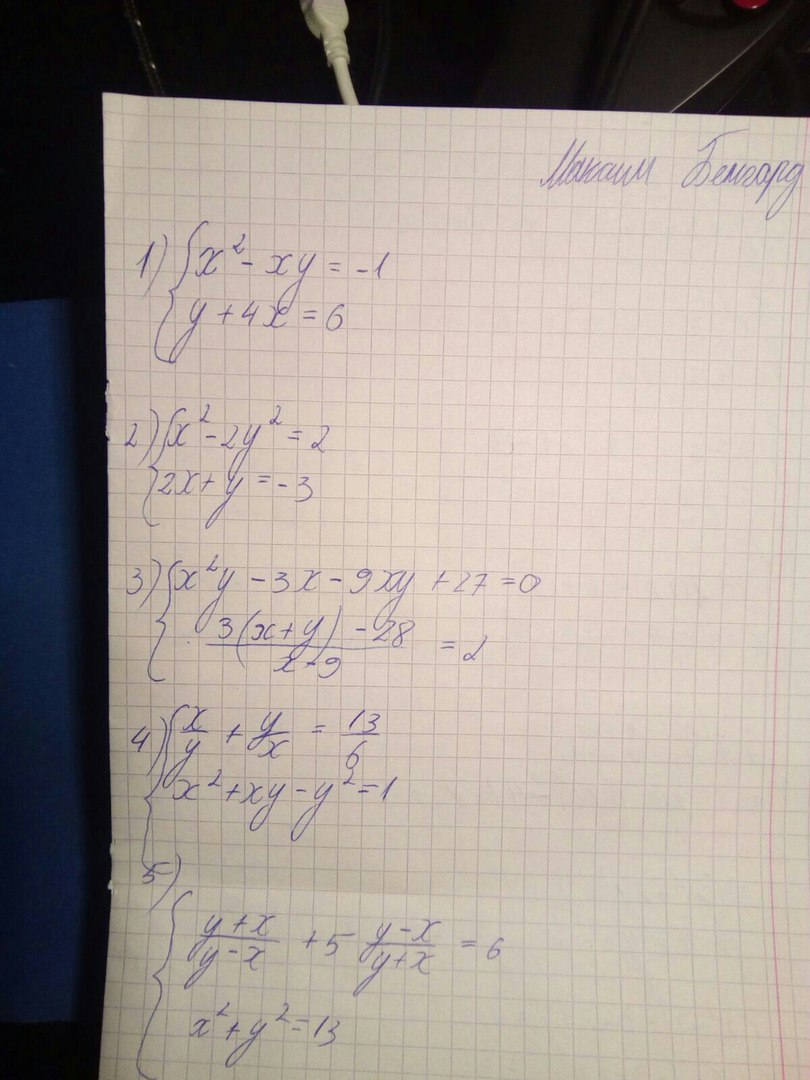 Максим
1) { x² - xy = -1
y + 4x = 6
2) { x² - 2y² = 2
2x + y = -3
3) { x²y - 3x - 9xy + 27 = 0
(3(x+y) - 28)/(x-9) = 2
4) { x/y + y/x = 13/6
x² + xy - y² = 1
5)
{ (y+x)/(y-x) + 5 (y-x)/(y+x) = 6
x² + y² = 13